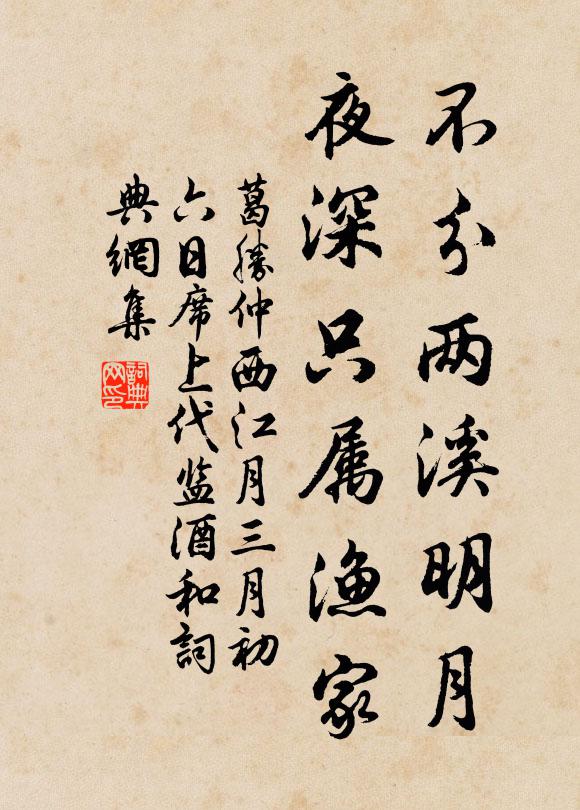 不分两溪明月
夜深只属渔家
葛勝仲西江月三月初
六日席上代监酒和詞
典網集
詞典网印